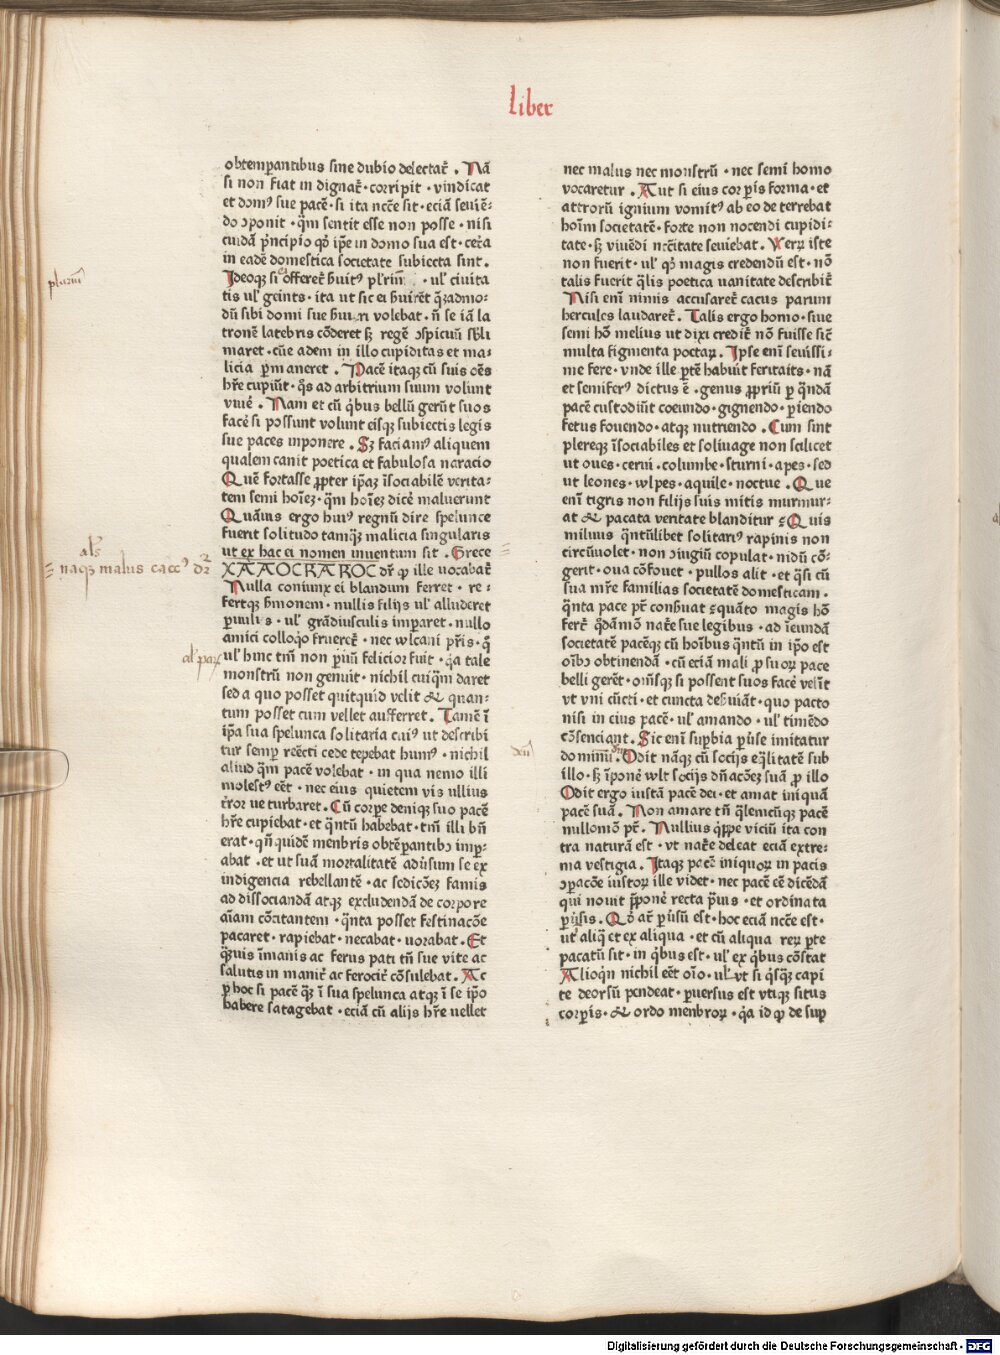 liber
obtemꝑantibus sine dubio delectat᷑ . Nã
si non fiat in dignat᷑ · corripit · vindicat
et domꝰ sue pacē · si ita ncc̄e sit · eciã seuiē-
do ↄponit · q̄m sentit esse non posse · nisi
cuidã pͥncipio qd̓ ip̄e in domo sua est · cet̓a
in eadē domestica societate subiecta sint .
Ideoqꝫ si offeret᷑ ẜuitꝰ pl̓rim̄ · ul̓ ciuita
plurim̄
tis ul̓ gentis · ita ut sic ei ẜuiret᷑ q̄ꝫadmo-
dū sibi domi sue ẜuiri volebat · ñ se iã la
tronē latebris cōderet sꝫ regē ↄspicuū sb̓li
maret · cūe adem in illo cupiditas et ma-
licia ꝑmaneret . Pacē itaqꝫ cū suis oēs
hr̄e cupiūt · qͦs ad arbitrium suum volunt
viuē . Nam et cū qͥbus bellū gerūt suos
facē si possunt volunt eisqꝫ subiectis legis
sue paces inponere . Sꝫ faciamꝰ aliquem
qualem canit poetica et fabulosa naracio
Quē fortasse ꝓpter ip̄aꝫ ĩsociabilē verita-
tem semi hoīeꝫ · q̄m hoīeꝫ dicē maluerunt
Quãuis ergo huiꝰ regnū dire spelunce
fuerit solitudo tamqꝫ malicia singularis
ut ex hac ei nomen inuentum sit . Grece
al̓s
naqꝫ malus caccꝰ dr̄
XAAOCRAROC dr̄ ꝙ ille uocabat᷑
Nulla coniunx ei blandum ferret · re-
fertqꝫ ẜmonem · nullis filijs ul̓ alluderet
ꝑuulis · ul̓ grãdiusculis imparet · nullo
amici colloqͦo frueret᷑ · nec wlcani pr̄is · qͣ
al̓ paꝝ
ul̓ hinc tm̄ non ꝑuū felicior fuit · qͥa tale
monstrū non genuit · nichil cuiqͣm daret
sed a quo posset quitquid velit & quan-
tum posset cum vellet aufferret . Tamē ĩ
ip̄a sua spelunca solitaria cuiꝰ ut describi
tur semꝑ recēti cede tepebat humꝰ · nichil
aliud q̄m pacē volebat · in qua nemo illi
molestꝰ eēt · nec eius quietem vis ullius
t̓ror ue turbaret . Cū corꝑe deniqꝫ suo pacē
hr̄e cupiebat · et qͣntū habebat · tm̄ illi bn̄
erat · qn̄quidē menbris obtēꝑantibꝰ imꝑ-
abat · et ut suã mortalitatē aduͥsum se ex
indigencia rebellantē · ac sedicōeꝫ famis
ad dissociandã atqꝫ excludendã de corpore
aĩam cōcitantem · qͣnta posset festinacōe
pacaret · rapiebat · necabat · uorabat . Et
qͣꝫuis ĩmanis ac ferus pati tn̄ sue vite ac
salutis in manit᷑ ac ferocit᷑ cōsulebat . Ac
ꝑ hoc si pacē qͣꝫ ĩ sua spelunca atqꝫ ĩ se ip̄o
habere satagebat · eciã cū alijs hr̄e uellet
nec malus nec monstrū · nec semi homo
vocaretur . Aut si eius corꝑis forma · et
attrorū ignium vomitꝰ ab eo de terrebat
hoīm societatē · forte non nocendi cupidi-
tate · sꝫ viuēdi nc̄citate seuiebat . Veꝝ iste
non fuerit · ul̓ qd̓ magis credendū est · nō
talis fuerit qͣlis poetica uanitate describit᷑
Nisi enī nimis accusaret᷑ cacus parum
hercules laudaret᷑ . Talis ergo homo · siue
semi hō melius ut dixi credit᷑ nō fuisse sic̄
multa figmenta poetaꝝ . Ipse enī seuissi-
me fere · vnde ille ꝑtē habuit feritatis · nã
et semiferꝰ dictus ē · genus ꝓpriū ꝑ qͣndã
pacē custodiūt coeundo · gignendo · ꝑiendo
fetus fouendo · atqꝫ nutriendo . Cum sint
plereqꝫ ĩsociabiles et soliuage non scilicet
ut oues · cerui · columbe · sturni · apes · sed
ut leones · wlpes · aquile · noctue . Que
enī tigris non filijs suis mitis murmur-
at & pacata veritate blanditur Quis
miluus qͣntūlibet solitariꝰ rapinis non
circūuolet · non ↄiugiū copulat · nidū cō-
gerit · oua cōfouet · pullos alit · et qͣsi cū
sua mr̄e familias societatē domesticam ·
qͣnta pace pt̄ conẜuat quãto magis hō
fert᷑ qͦdãmō nat̓e sue legibus · ad ĩeundã
societatē pacēqꝫ cū hoībus qͣntū in ip̄o est
oīb̓ obtinendã · cū eciã mali ꝓ suoꝝ pace
belli gerēt · om̄sqꝫ si possent suos facē velīt
vt vni cūcti · et cuncta deẜuiãt · quo pacto
nisi in eius pacē · ul̓ amando · ul̓ timēdo
cōsenciant . Sic enī suꝑbia ꝑuͥse imitatur
dominū . Odit nãqꝫ cū socijs eqͣlitatē sub
illo · sꝫ ĩponē wlt socijs dn̄acōeꝫ suã ꝓ illo
Odit ergo iustã pacē dei · et amat iniquã
pacē suã . Non amare tn̄ qͣlemcūqꝫ pacē
nullomō pt̄ . Nullius qͥppe viciū ita con
tra naturã est · vt nat̓e deleat eciã extre-
ma vestigia . Itaqꝫ pacē iniquoꝝ in pacis
ↄꝑacōe iustoꝝ ille videt · nec pacē eē dicēdã
qui nouit p̄ponē recta pͣuis · et ordinata
ꝑuͥsis . Qd̓ at̄ ꝑuͥsū est · hoc eciã ncc̄e est ·
ut aliqͣ et ex aliqua · et cū aliqua reꝝ ꝑte
pacatū sit · in qͥbus est · ul̓ ex qͥbus cōstat
Alioqn̄ nichil eēt oīo · ul̓ vt si qͥsqͣꝫ capi
te deorsū pendeat · ꝑuersus est vtiqꝫ situs
corꝑis · & ordo menbroꝝ · qͥa id ꝙ de suꝑ
Digitalisierung gefördert durch die Deutsche Forschungsgemeinschaft - DFG